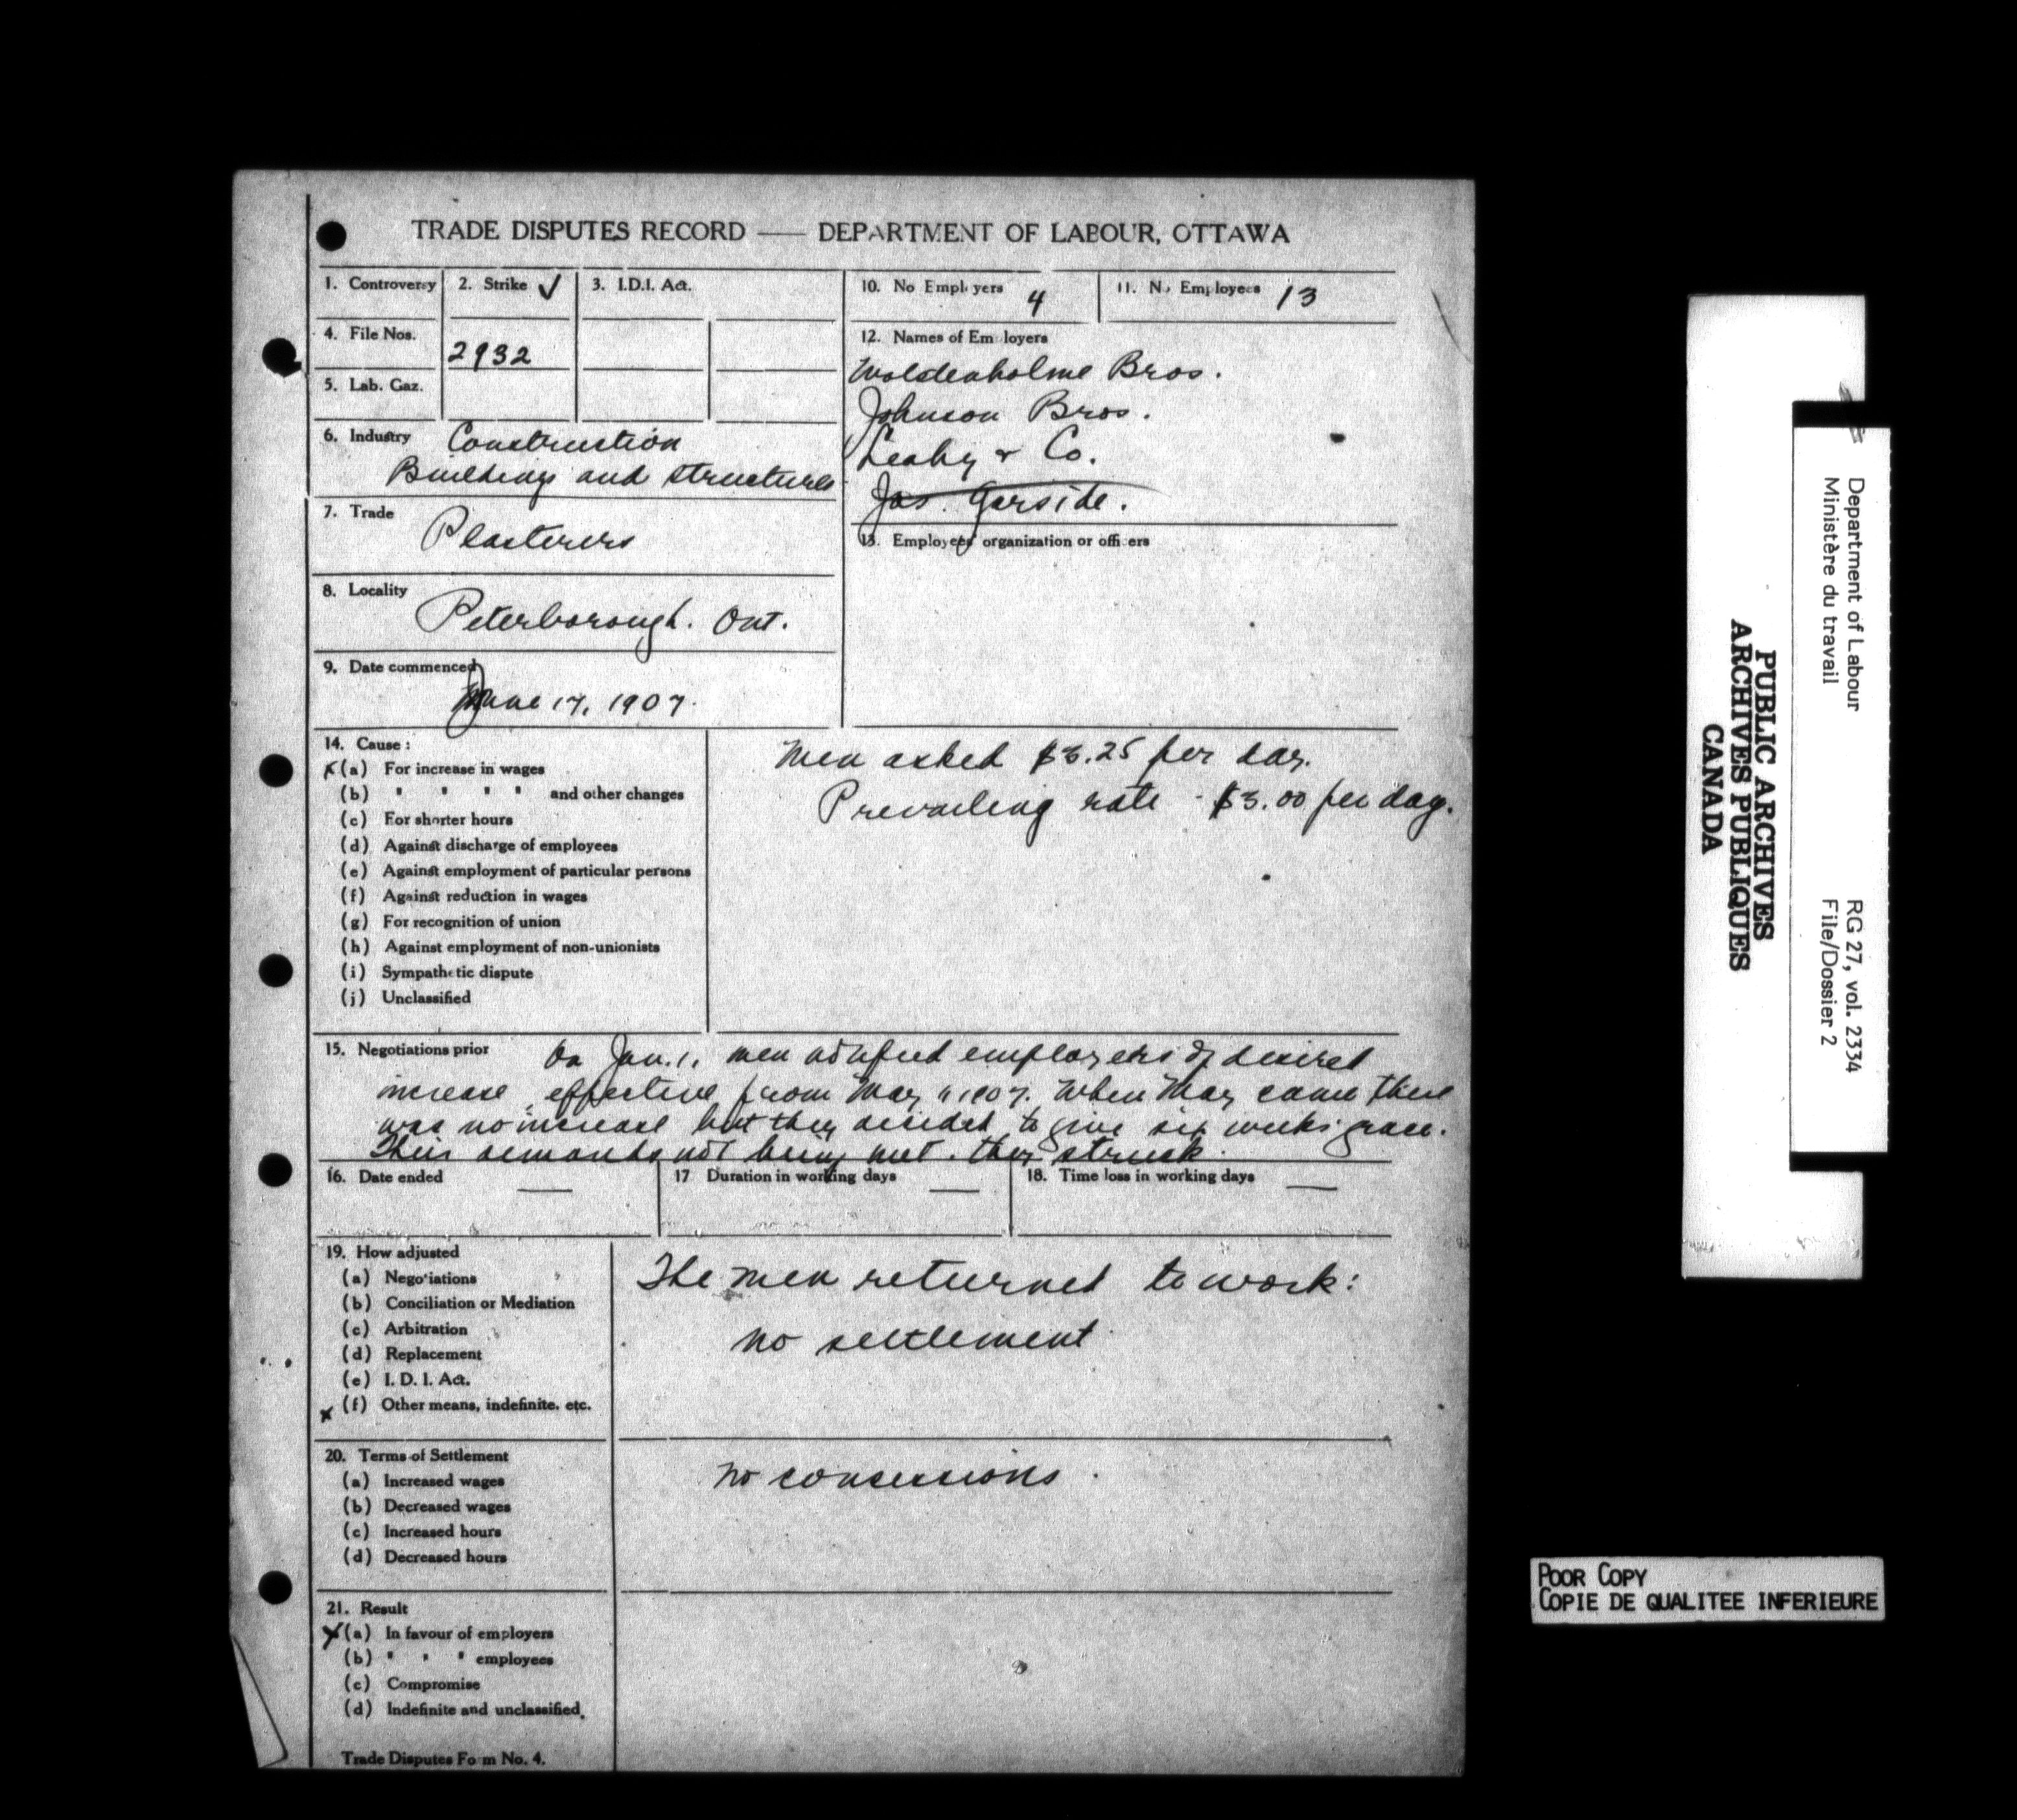 TRADE DISPUTES RECORD —— DEPARTMENT OF LABOUR, OTTAWA
1. Controversy
2. Strike ✓
3. I.D.I. Act.
4. File Nos.
2932
5. Lab. Gaz.
6. Industry Construction
Buildings and structures
7. Trade
Plasterers
8. Locality
Peterborough. Ont.
9. Date commenced
June 17, 1907.
10. No Employers 4
11. No Employees 13
12. Names of Employers
Wolstenholme Bros.
Johnson Bros.
Leahy & Co.
Jas. Garside.
13. Employees' organization or officers
14. Cause :
x (a) For increase in wages
(b) " " " " and other changes
(c) For shorter hours
(d) Against discharge of employees
(e) Against employment of particular persons
(f) Against reduction in wages
(g) For recognition of union
(h) Against employment of non-unionists
(i) Sympathetic dispute
(j) Unclassified
Men asked $3.25 per day.
Prevailing rate - $3.00 per day.
15. Negotiations prior On Jan. 1, men notified employers of desired
increase effective from May 1, 1907. When May came there
was no increase but they decided to give six weeks' grace.
Their demands not being met, they struck.
16. Date ended —
17 Duration in working days —
18. Time loss in working days —
19. How adjusted
(a) Negotiations
(b) Conciliation or Mediation
(c) Arbitration
(d) Replacement
(e) I. D. I. Act.
x (f) Other means, indefinite, etc.
The men returned to work:
no settlement
20. Terms of Settlement
(a) Increased wages
(b) Decreased wages
(c) Increased hours
(d) Decreased hours
no concessions.
21. Result
x (a) In favour of employers
(b) " " " employees
(c) Compromise
(d) Indefinite and unclassified.
Trade Disputes Form No. 4.
Department of Labour
Ministère du travail
RG 27, vol. 2334
File/Dossier 2
PUBLIC ARCHIVES
ARCHIVES PUBLIQUES
CANADA
POOR COPY
COPIE DE QUALITEE INFERIEURE